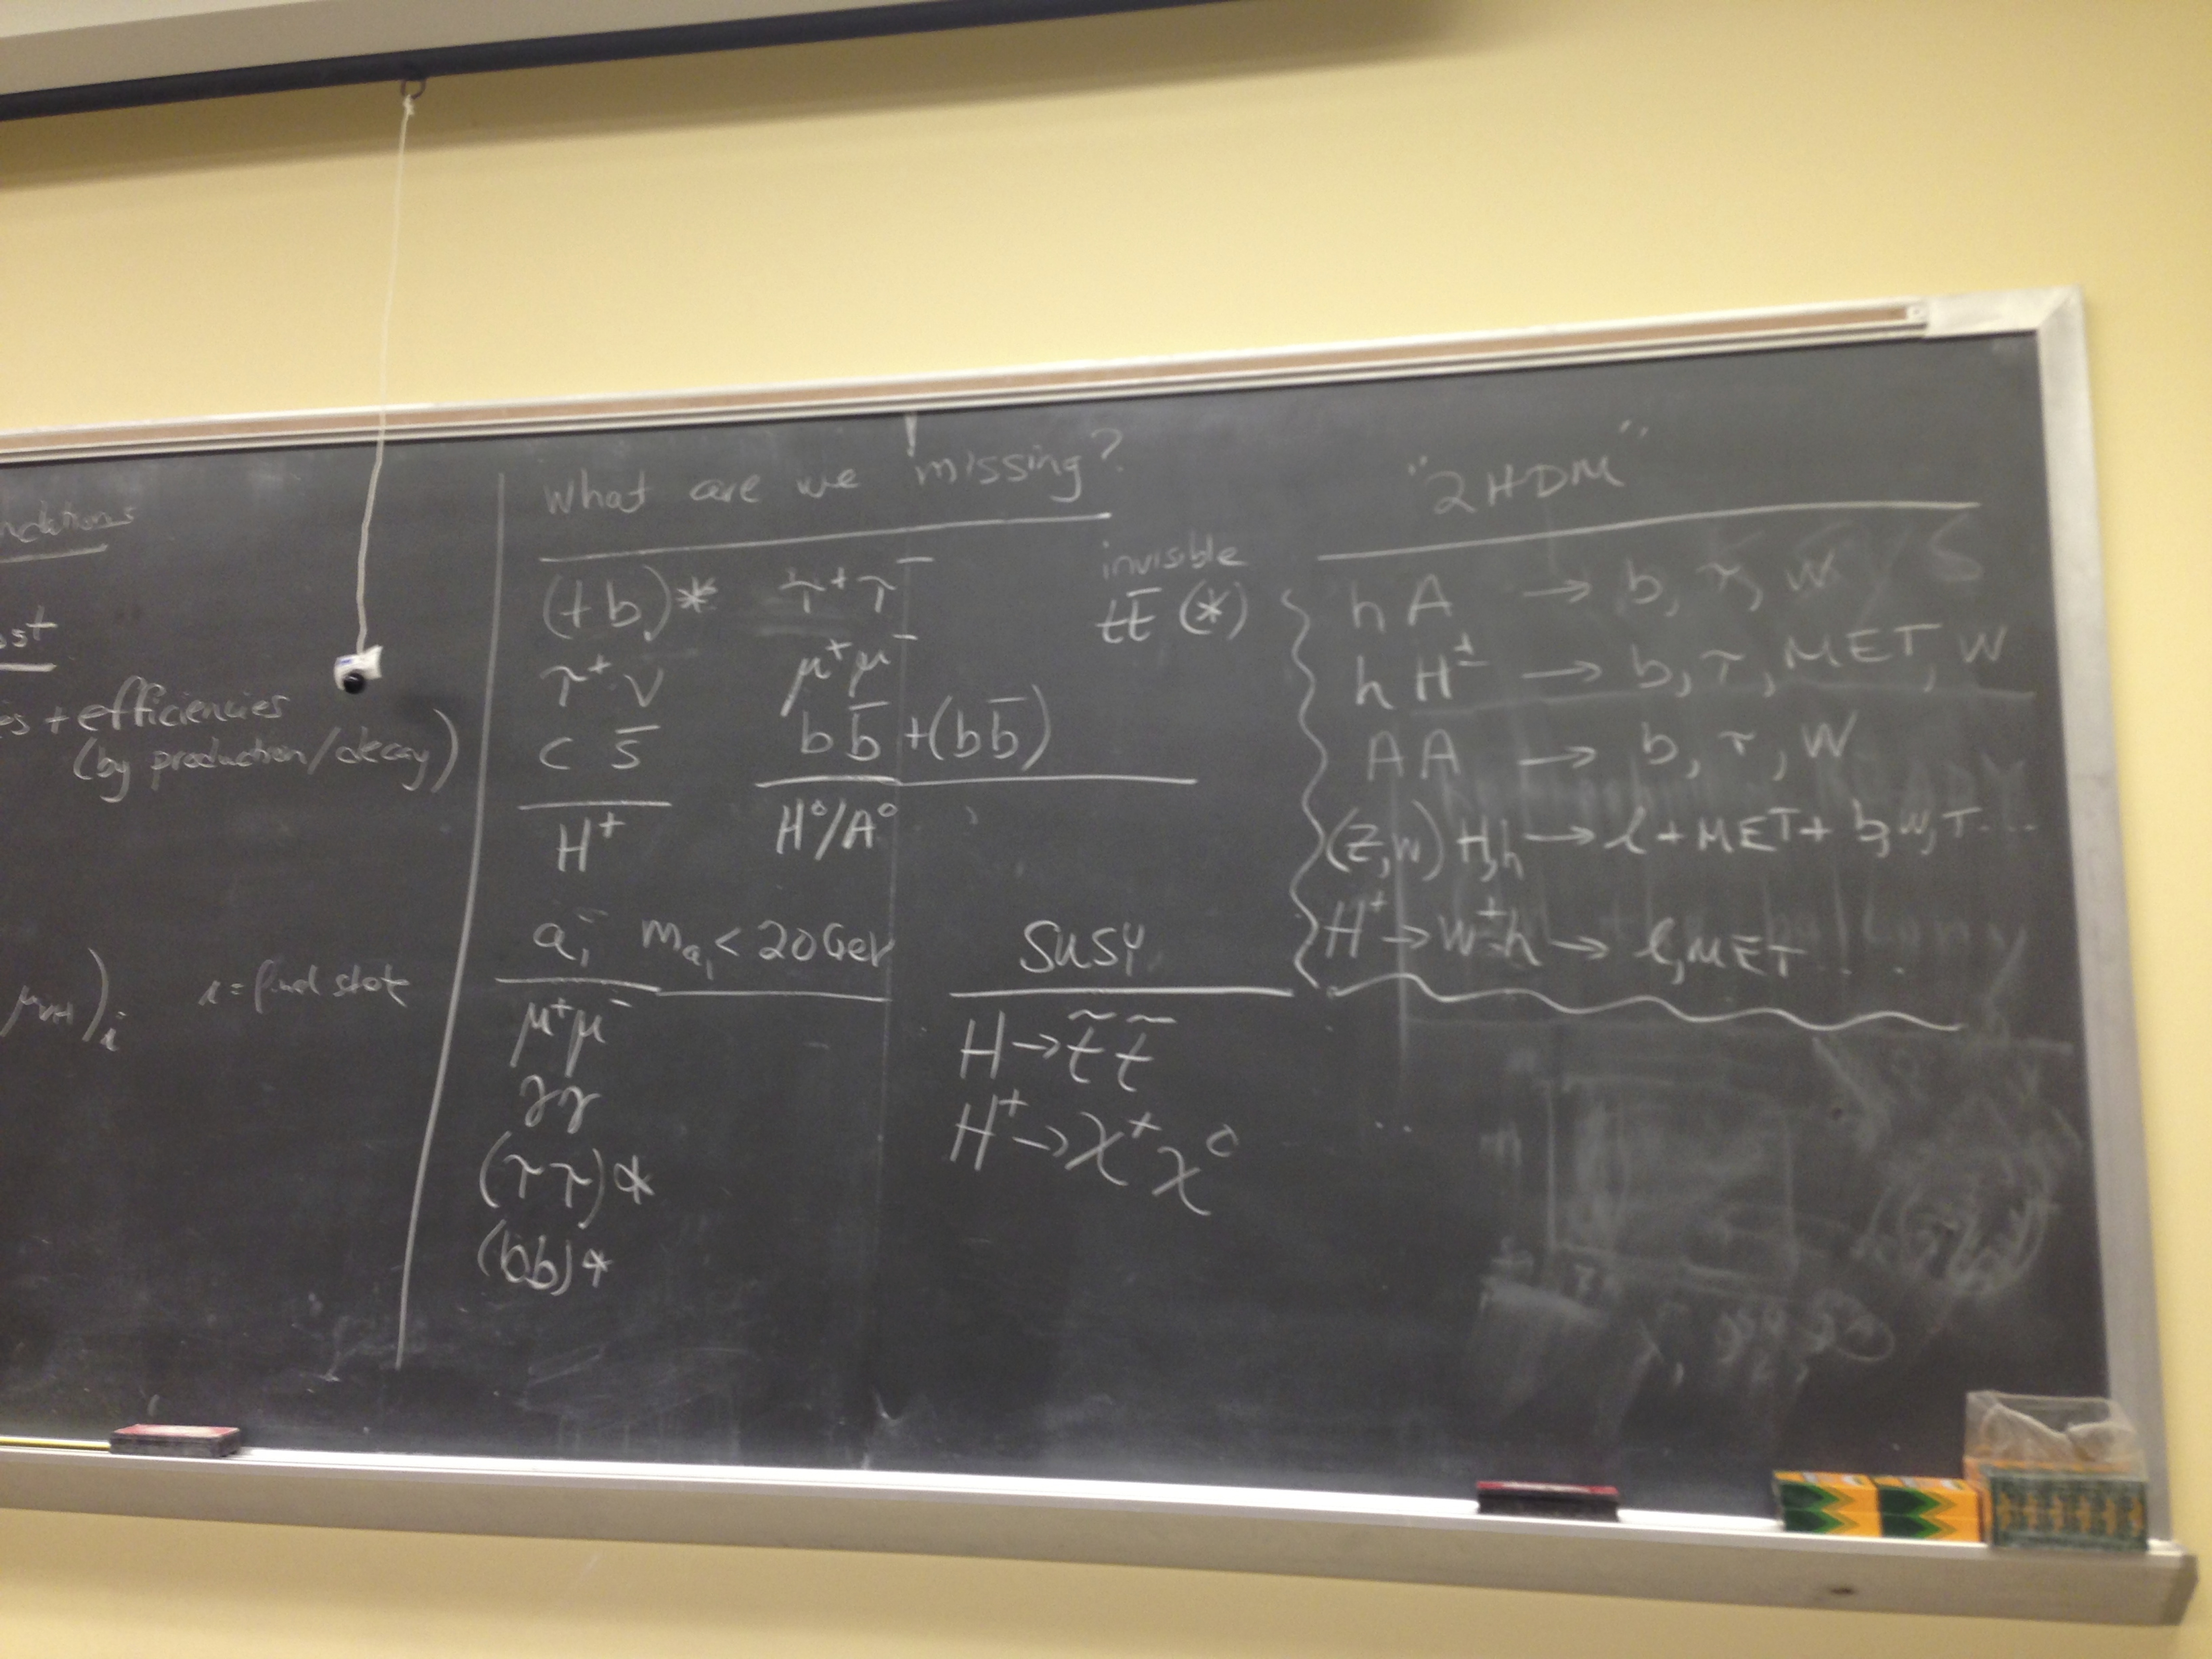 + efficiencies
(by production/decay)
i = final state
What are we missing?
(tb)* τ⁺τ⁻
τ⁺ν μ⁺μ⁻
c s̄ bb̄ +(bb̄)
H⁺ H⁰/A⁰
invisible
tt̄ (*)
a₁ m_a₁ < 20 GeV
μ⁺μ⁻
γγ
(ττ)*
(bb)*
SUSY
H → t̃ t̃
H⁺ → χ⁺ χ⁰
"2HDM"
hA → b, τ, W
hH± → b, τ, MET, W
AA → b, τ, W
(Z,W) H,h → ℓ + MET + b, W, τ ...
H⁺ → W±h → ℓ, MET ...